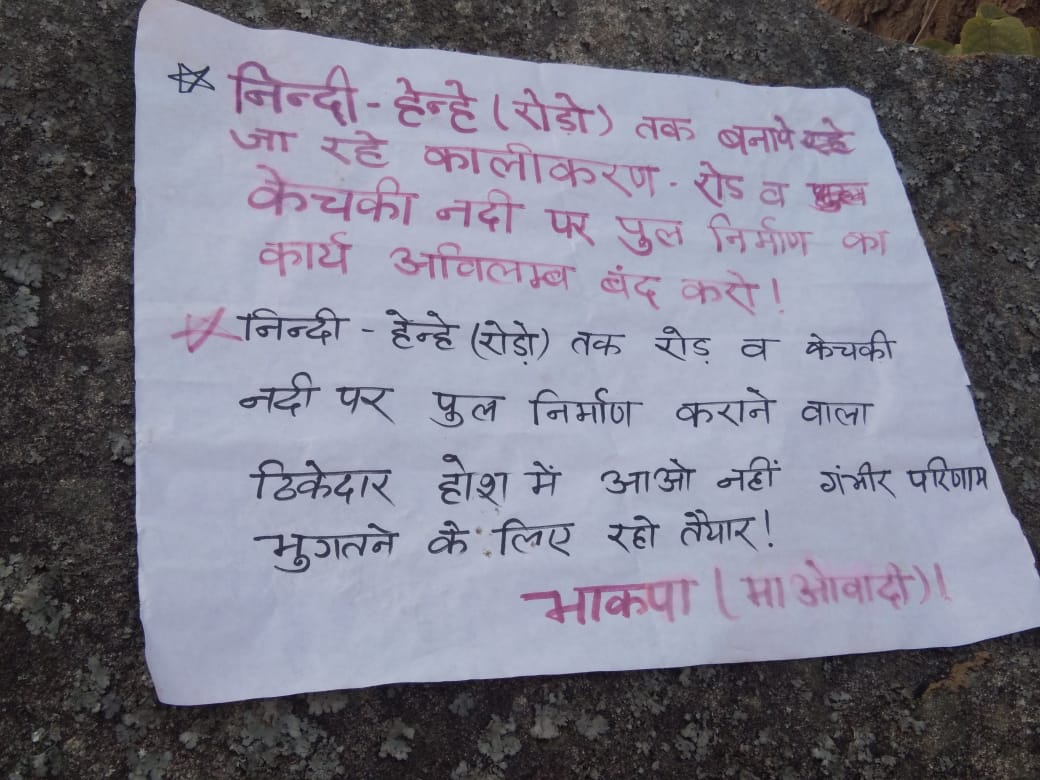 ☆ निन्दी - हेन्हे (रोड़ो) तक बनाये
जा रहे कालीकरण - रोड व
केचकी नदी पर पुल निर्माण का
कार्य अविलम्ब बंद करो!
☆ निन्दी - हेन्हे (रोड़ो) तक रोड़ व केचकी
नदी पर पुल निर्माण कराने वाला
ठिकेदार होश में आओ नहीं गंभीर परिणाम
भुगतने के लिए रहो तैयार!
भाकपा (माओवादी)।